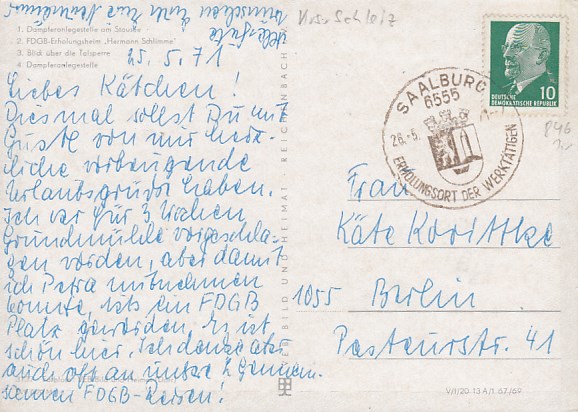 Viele Grüße
1. Dampferanlegestelle am Stausee
2. FDGB-Erholungsheim „Hermann Schlimme"
3. Blick über die Talsperre
4. Dampferanlegestelle
25.5.71
Liebes Kätchen!
Diesmal sollst Du mit
von mir herz-
liche
Urlaubsgrüße haben.
Ich war für 3 Wochen
Grundmühle vorgeschla-
gen worden, aber damit
ich Petra mitnehmen
konnte, ists ein FDGB
Platz geworden. Es ist
schön hier. Ich denke aber
auch oft an unsere 2 gemein-
samen FDGB-Reisen!
BILD UND HEIMAT REICHENBACH
Krs. Schleiz
SAALBURG
6555
26.-5.
ERHOLUNGSORT DER WERKTÄTIGEN
DEUTSCHE
DEMOKRATISCHE REPUBLIK
10
846
Frau
Käte
1055 Berlin
Pasteurstr. 41
V/I/20 13 A/1 67/69